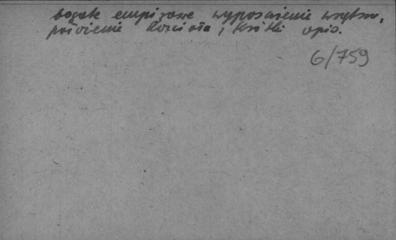 bogate empirowe wyposażenie wnętrza,
poświęcenie kościoła, krótki opis.
6/759